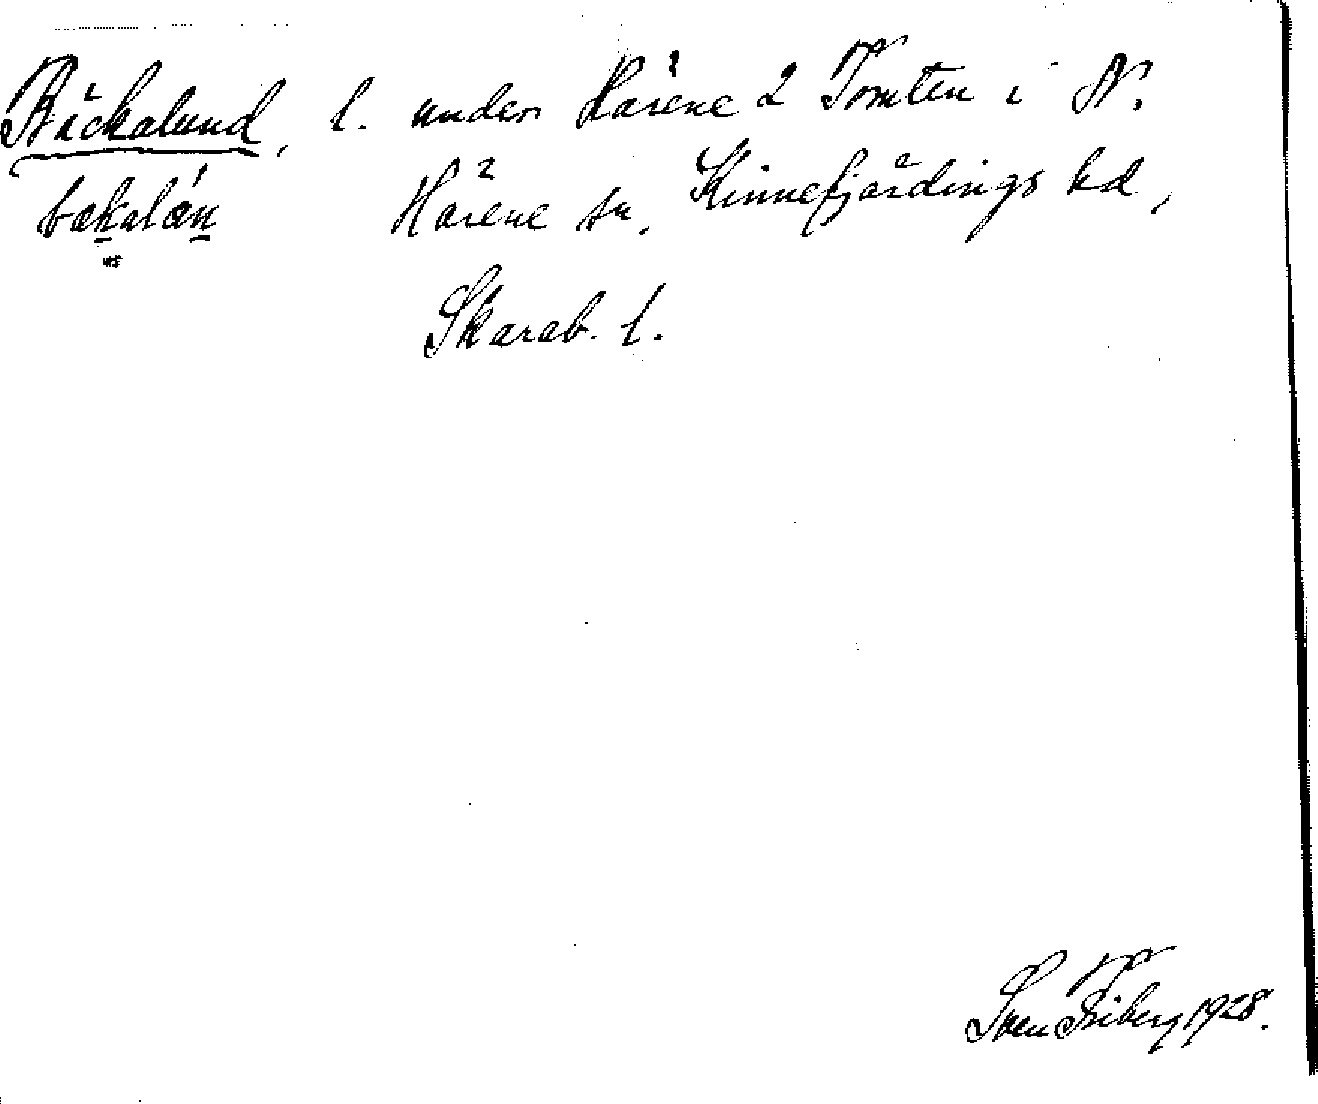 Bäckalund, l. under Härene 2 Tomten i N.
bækalón Härene sn, Kinnefjärdings hd,
Skarab. l.
Sven Friberg 1928.